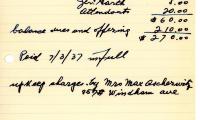 Jen. March 5.00
Attendants 20.00
$60.00
balance dues and offering 210.00
$270.00
Paid 7/3/37 in full
upkeep charge by Mrs Max
Windham ave